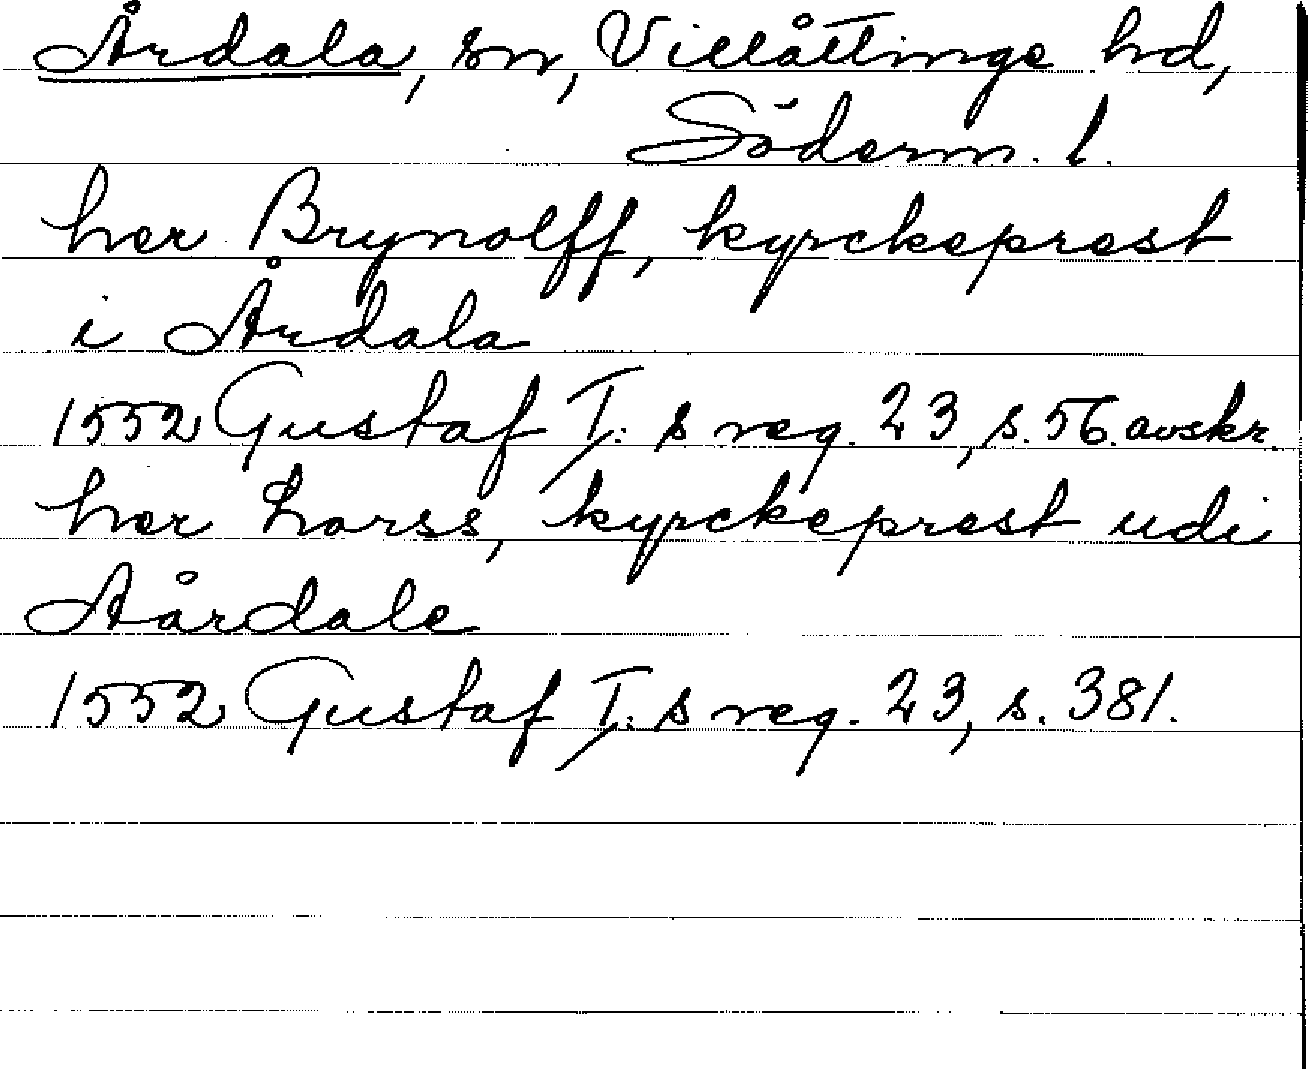 Årdala, sn, Villåttinge hd,
Söderm. l.
her Brynolff, kyrckeprest
i Årdala
1552 Gustaf I:s reg. 23, s. 56. avskr.
her Larss, kyrckeprest udi
Aårdale
1552 Gustaf I:s reg. 23, s. 381.